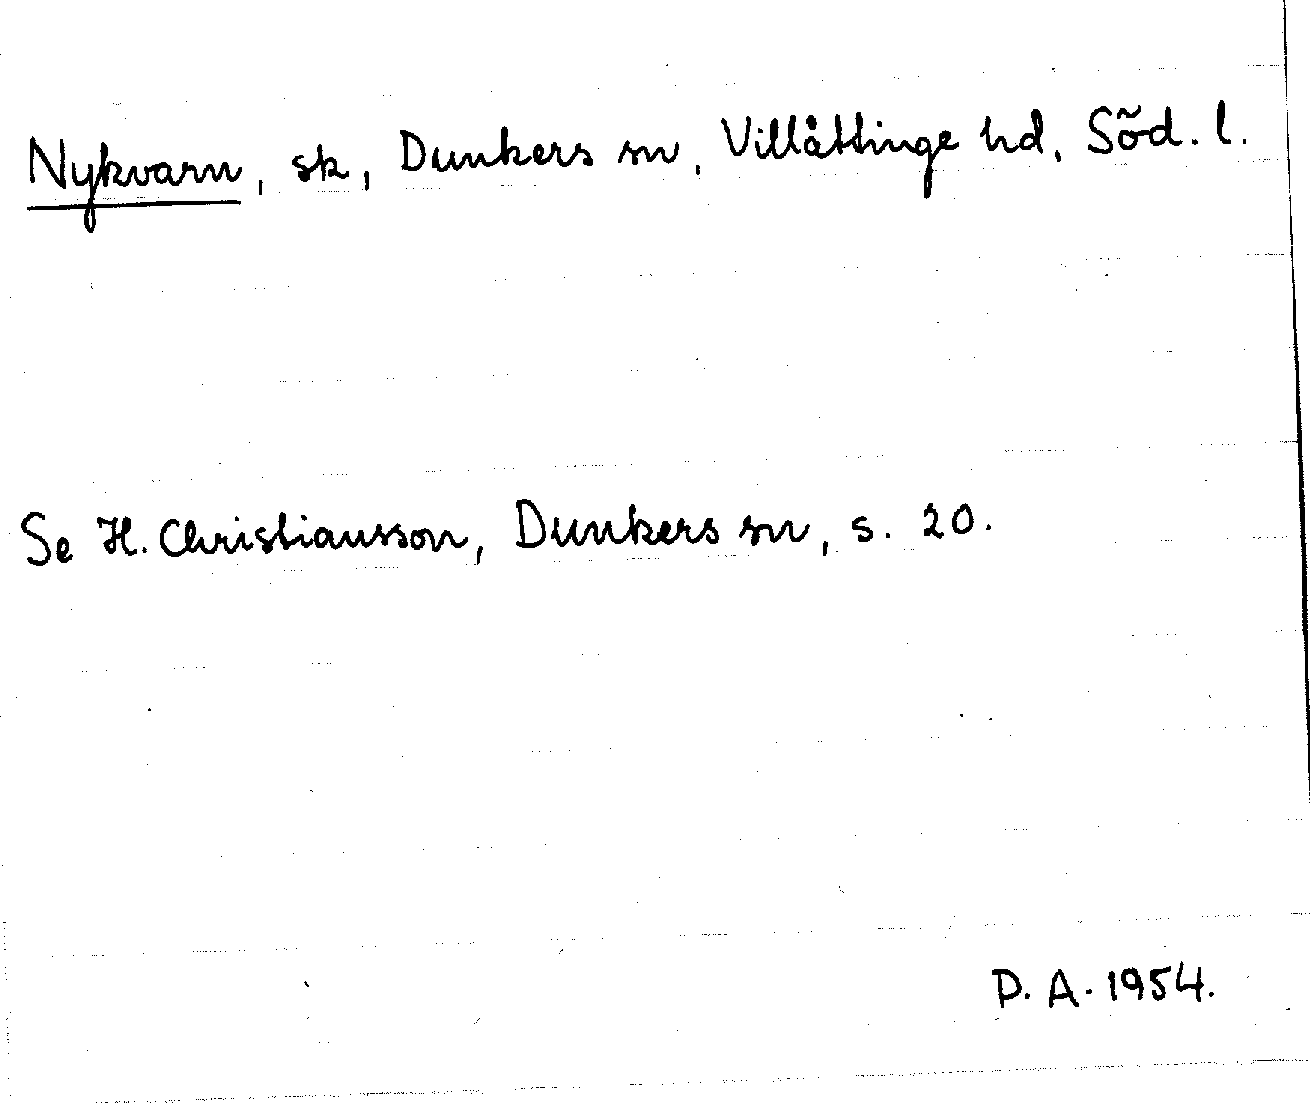 Nykvarn, sk, Dunkers sn, Villåttinge hd, Söd. l.
Se H. Christiansson, Dunkers sn, s. 20.
D. A. 1954.